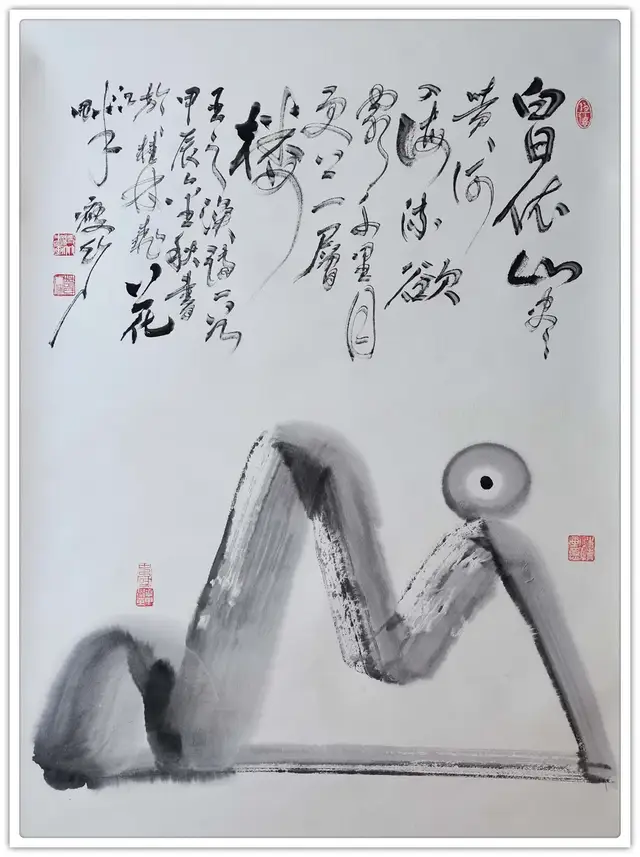 白日依山尽
黄河
入海流欲
穷千里目
更上一層
楼
王之涣诗
甲辰金秋書
於桂林花
江畔